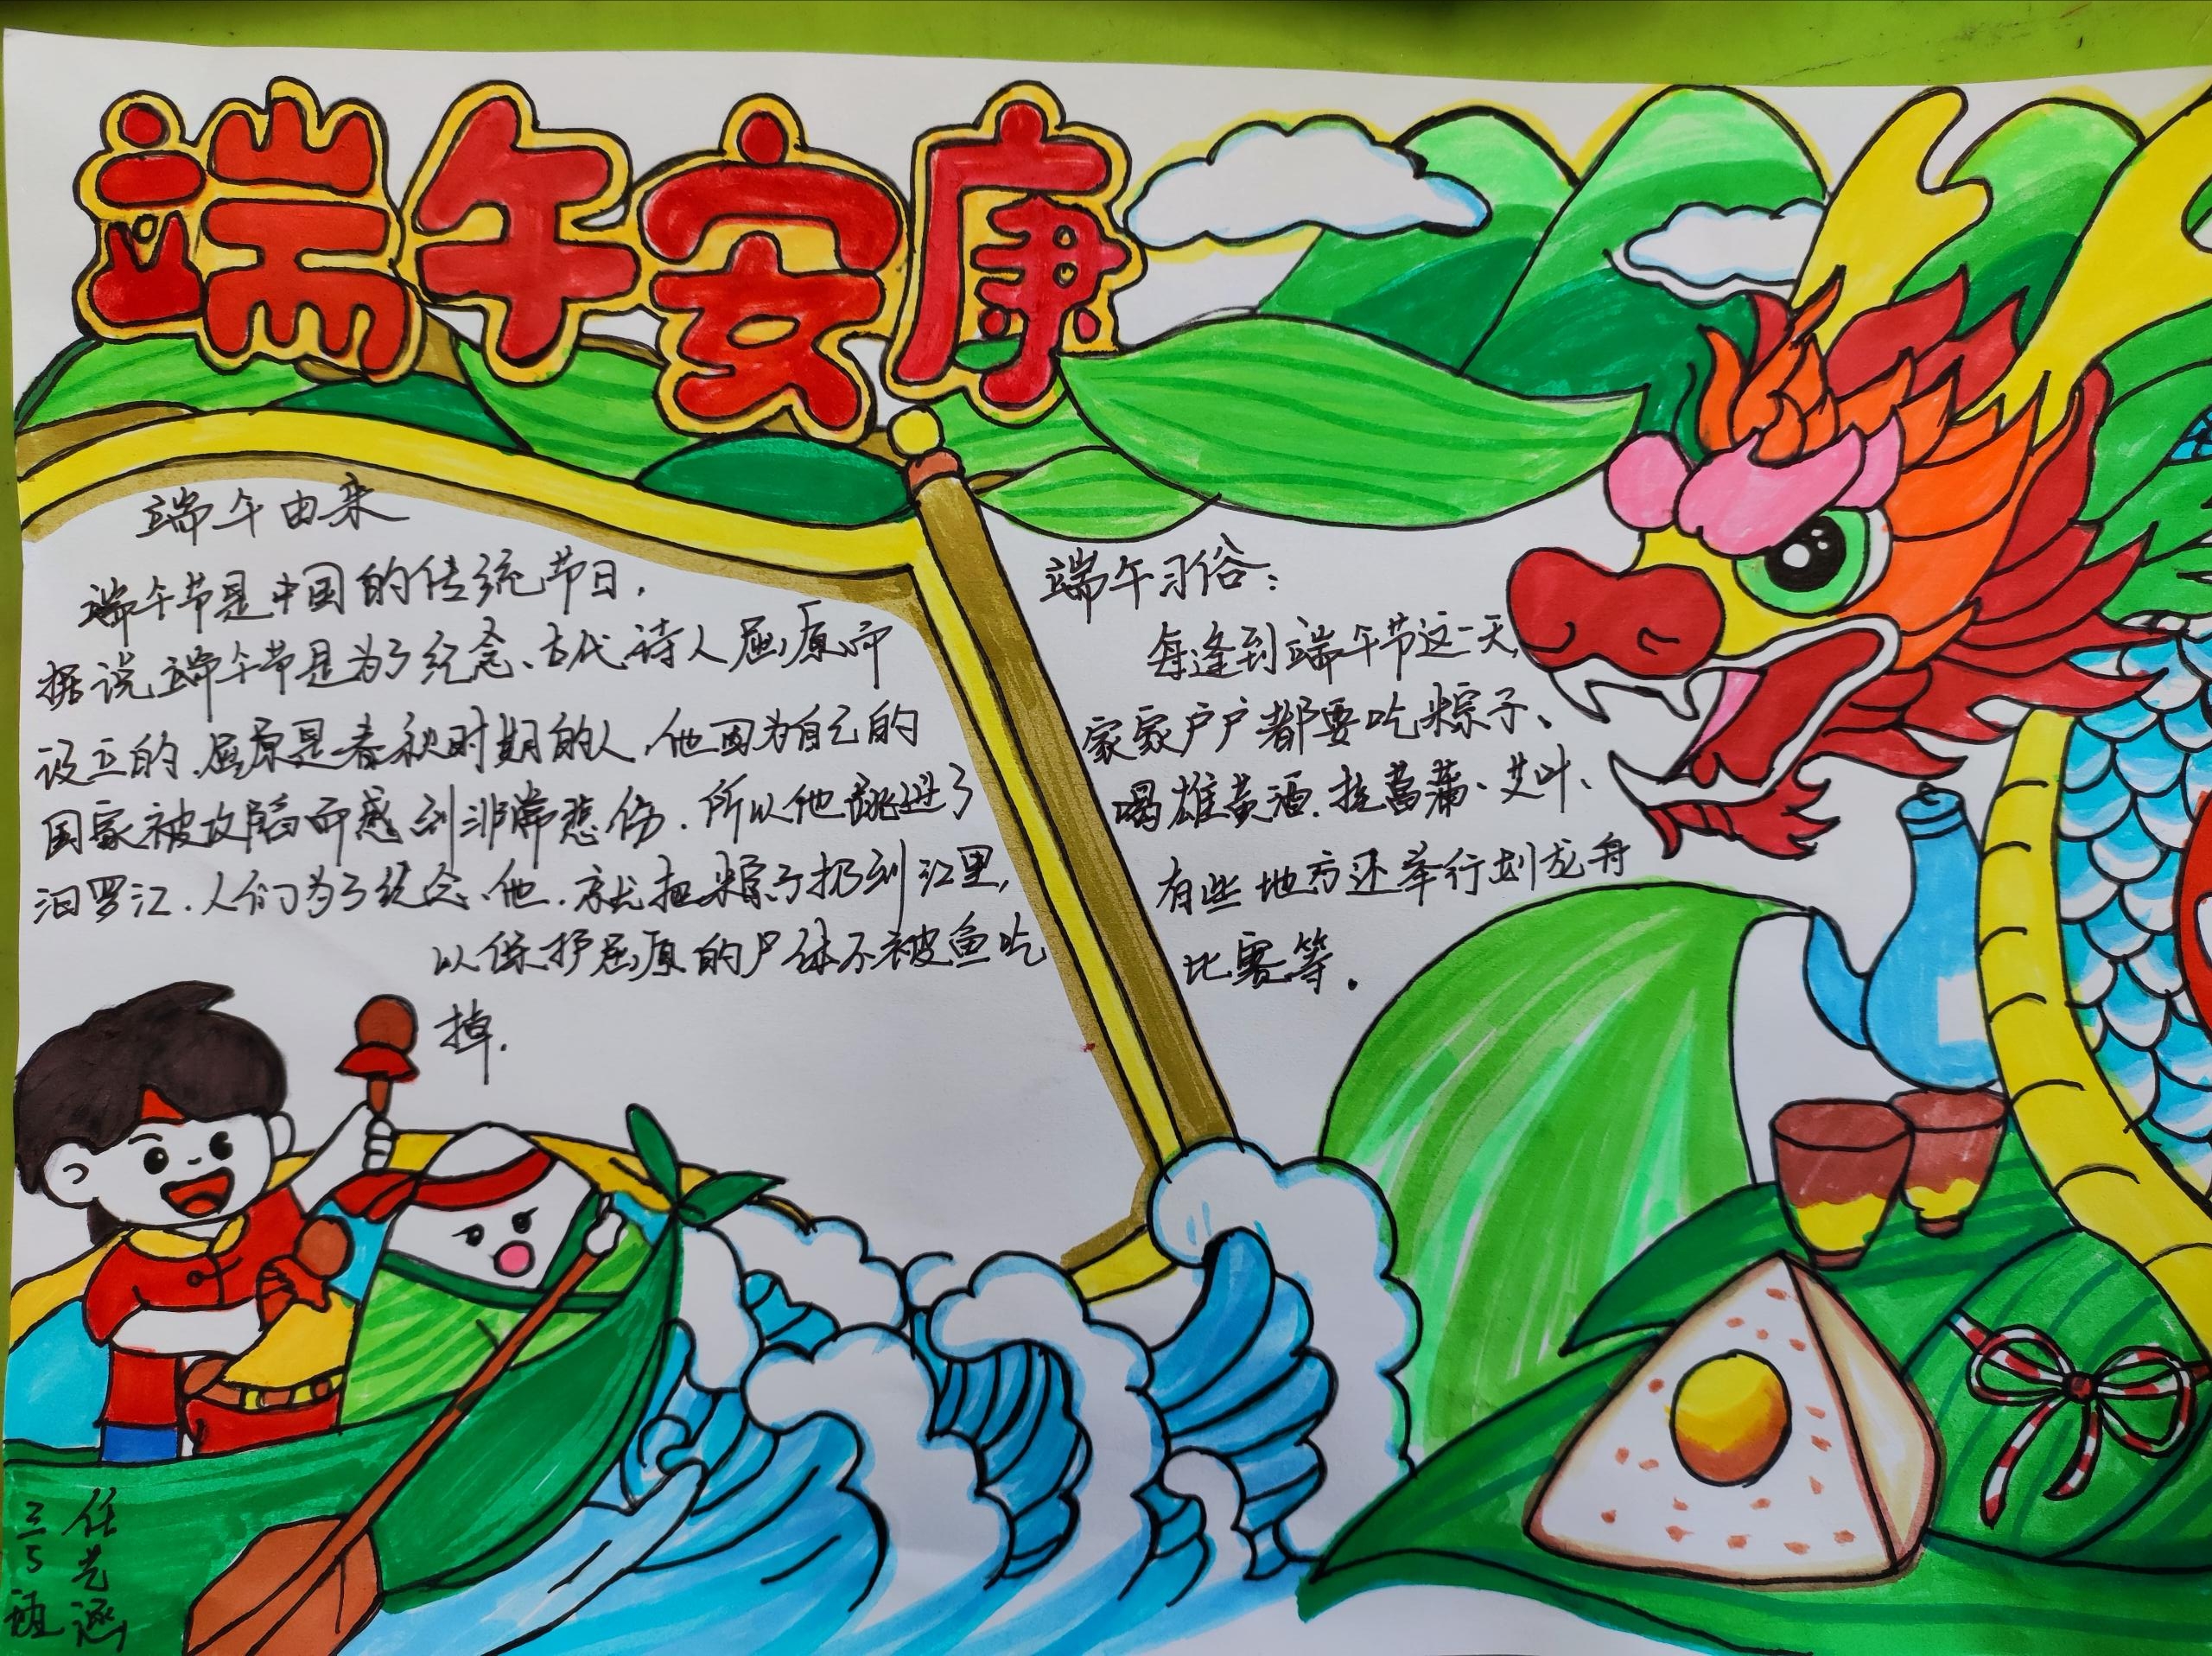 端午安康
端午由来
端午节是中国的传统节日，
据说端午节是为了纪念、古代诗人屈原而
设立的.屈原是春秋时期的人,他因为自己的
国家被攻陷而感到非常悲伤.所以他跳进了
汨罗江.人们为了纪念、他.就把粽子扔到江里,
以保护屈原的尸体不被鱼吃
掉.
端午习俗:
每逢到端午节这一天,
家家户户都要吃粽子、
喝雄黄酒.挂菖蒲、艾叶、
有些地方还举行划龙舟
比赛等.
任艺
三5